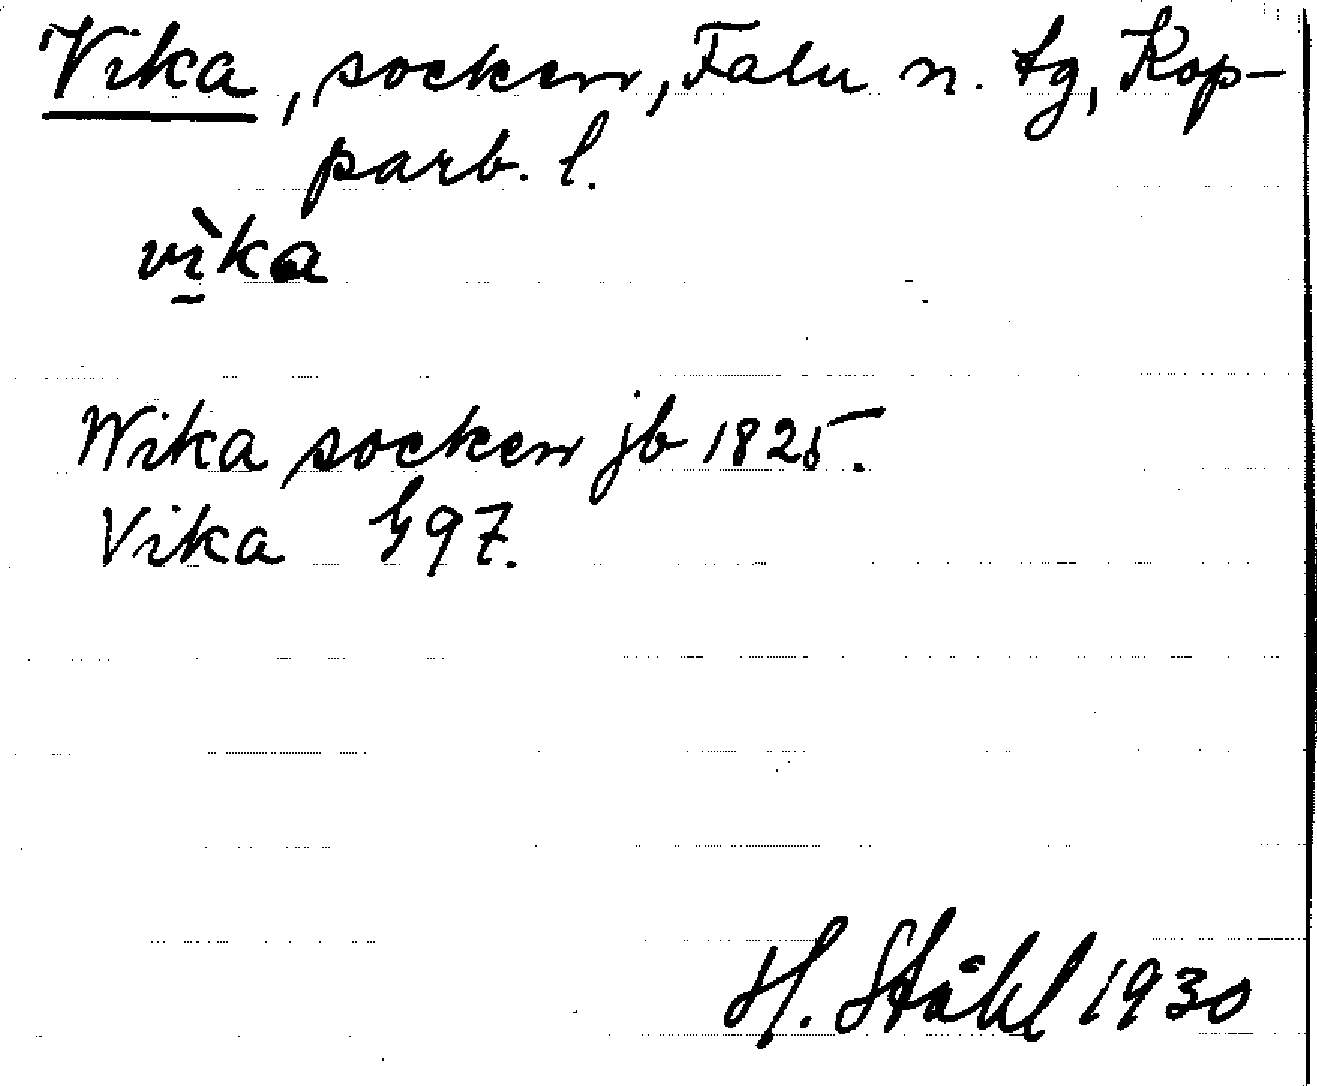 Vika, socken, Falu n. tg, Kop-
parb. l.
vì̱ka
Wika socken jb 1825.
Vika 97.
H. Ståhl 1930